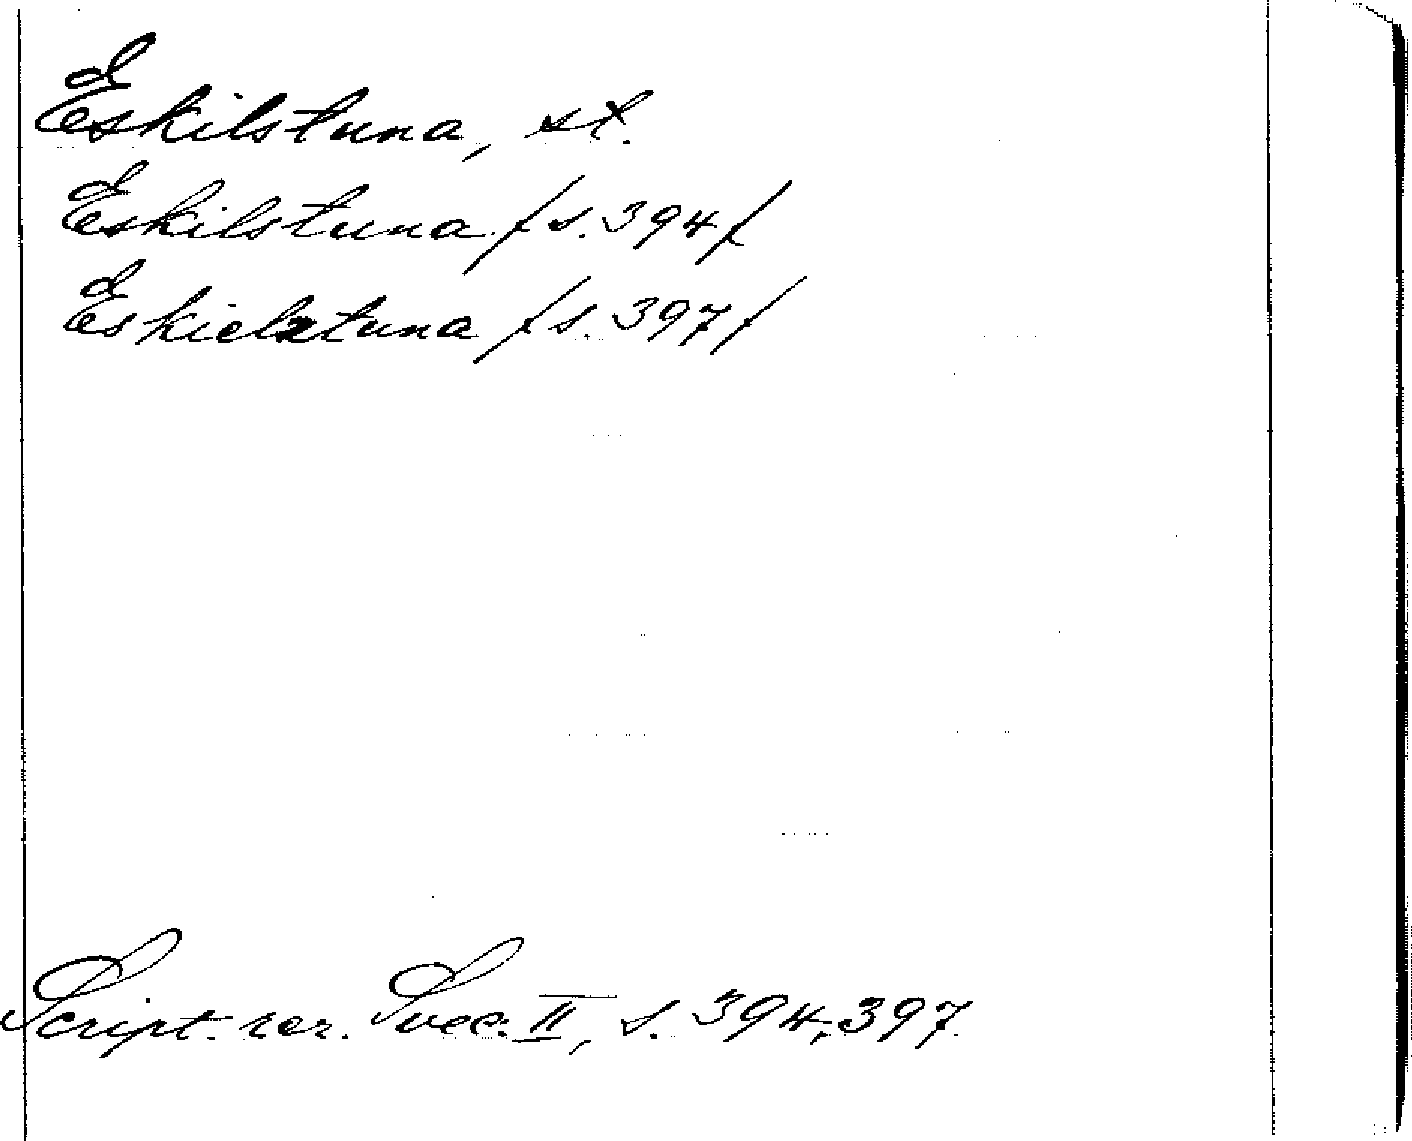 Eskilstuna, st.
Eskilstuna /s. 394/
Eskielztuna /s. 397/
Script. rer. Svec. II, s. 394, 397.